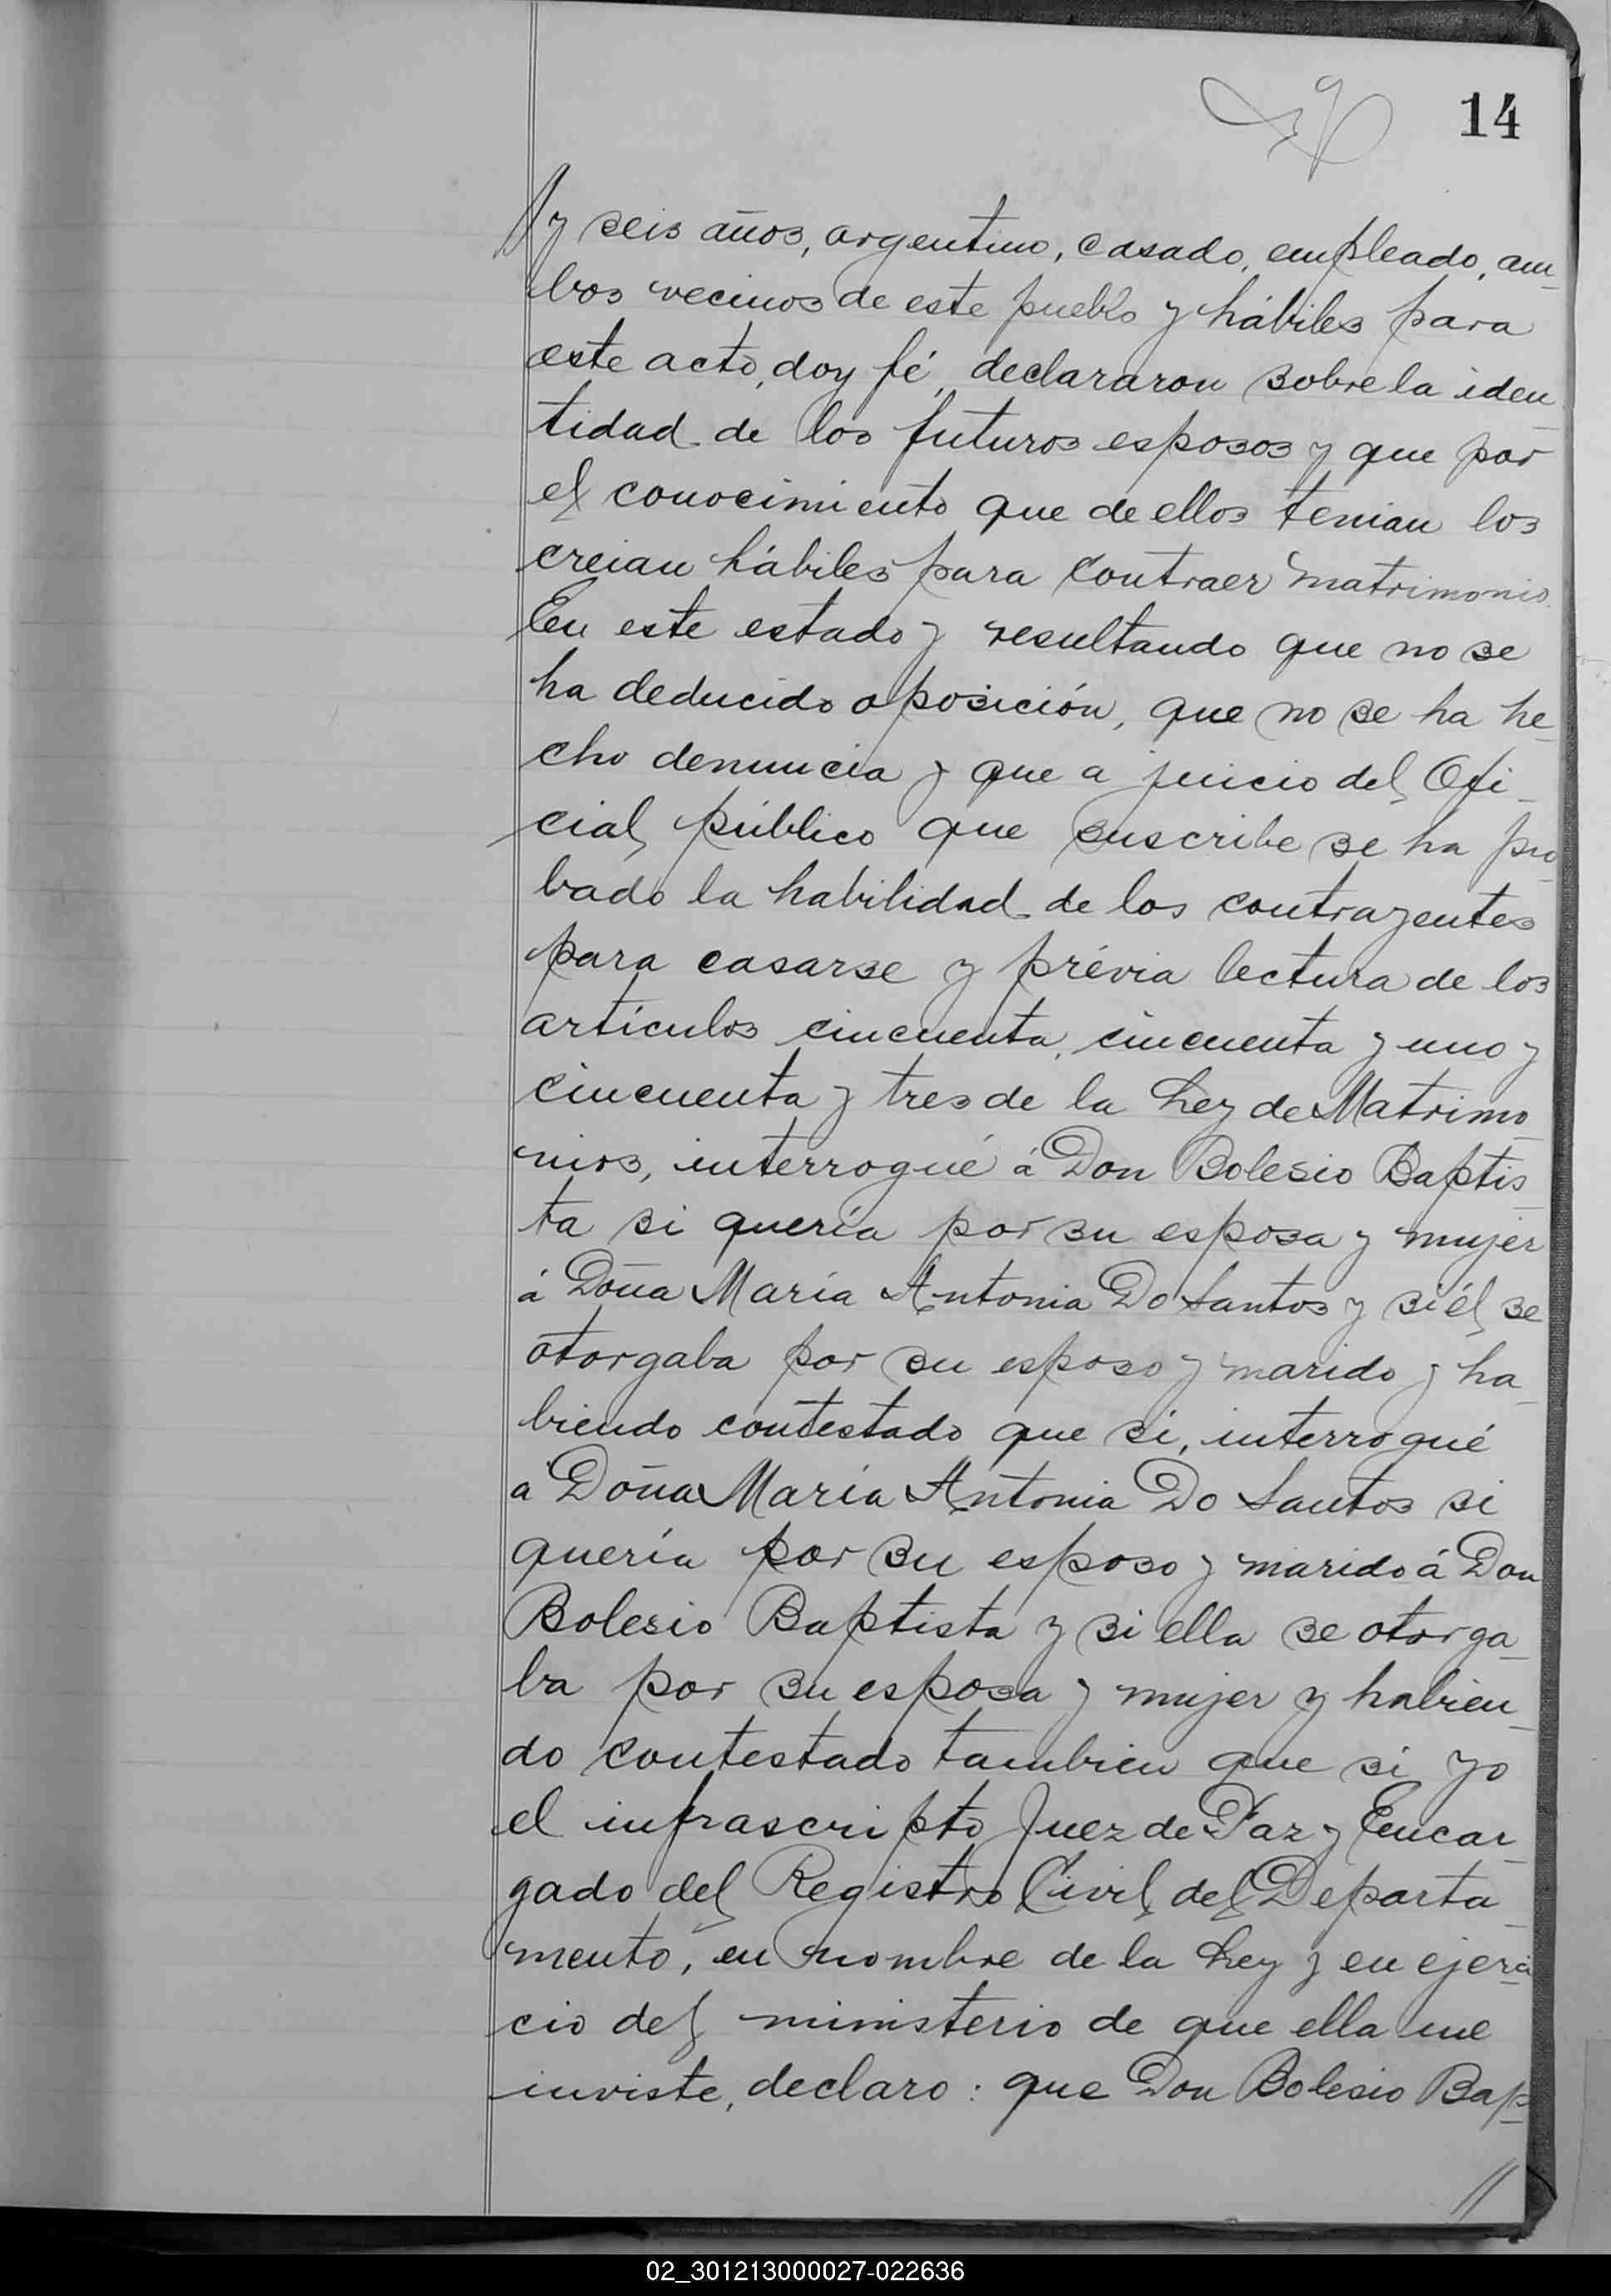 14
y seis años, argentino, casado, empleado, am_
bos vecinos de este pueblo y hábiles para
este acto, doy fé, declararon sobre la iden_
tidad de los futuros esposos y que por
el conocimiento que de ellos tenian los
creian hábiles para contraer matrimonio.
En este estado y resultando que no se
ha deducido oposición, que no se ha he_
cho denuncia y que a juicio del Ofi_
cial público que suscribe se ha pro_
bado la habilidad de los contrayentes
para casarse y prévia lectura de los
artículos cincuenta, cincuenta y uno y
cincuenta y tres de la Ley de Matrimo_
nios, interrogué á Don Bolesio Baptis_
ta si quería por su esposa y mujer
á Doña María Antonia Do Santos y si él se
otorgaba por su esposo y marido y ha_
biendo contestado que si, interrogué
a Doña María Antonia Do Santos si
quería por su esposo y marido á Don
Bolesio Baptista y si ella se otorga_
ba por su esposa y mujer y habien_
do contestado tambien que si yo
el infrascripto Juez de Paz y Encar_
gado del Registro Civil del Departa_
mento, en nombre de la Ley y en ejerci_
cio del ministerio de que ella me
inviste, declaro: que Don Bolesio Bap_
//
02_301213000027-022636